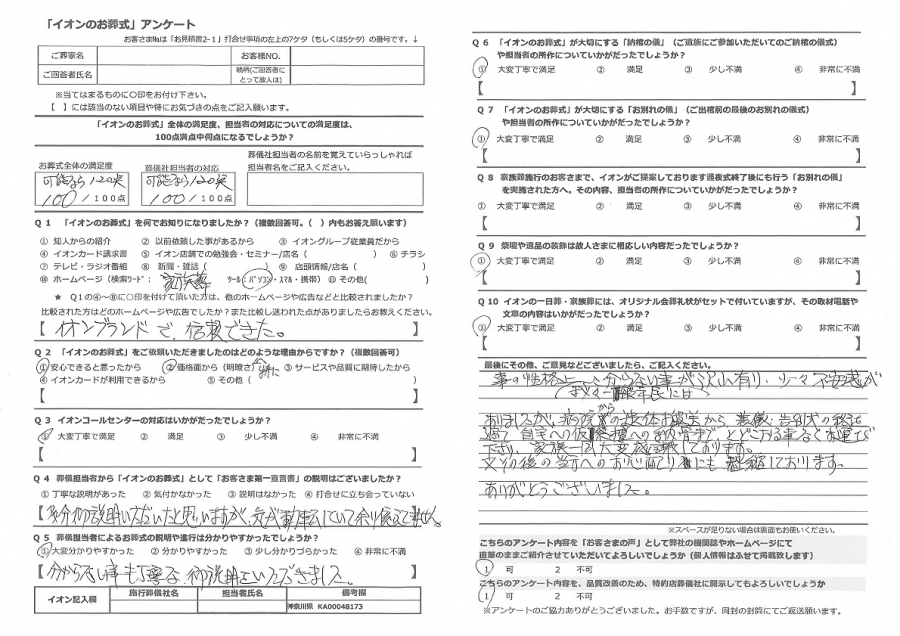 「イオンのお葬式」アンケート
お客さま№は「お見積書2-1」打合せ事項の左上の7ケタ（もしくは5ケタ）の番号です。↓
ご葬家名
お客様NO.
ご回答者氏名
続柄(ご回答者にとって故人は)
※当てはまるものに〇印をお付け下さい。
【　】には該当のない項目や特にお気づきの点をご記入願います。
「イオンのお葬式」全体の満足度、担当者の対応についての満足度は、
100点満点中何点になるでしょうか？
お葬式全体の満足度
葬儀社担当者の対応
葬儀社担当者の名前を覚えていらっしゃれば
担当者名をご記入ください。
可能なら120点
100/100点
可能なら120点
100/100点
Q１　「イオンのお葬式」を何でお知りになりましたか？（複数回答可。（　）内もお答え願います）
① 知人からの紹介　② 以前依頼した事があるから　③ イオングループ従業員だから
④ イオンカード請求書　⑤ イオン店舗での勉強会・セミナー/店名（　）　⑥ チラシ
⑦ テレビ・ラジオ番組　⑧ 新聞・雑誌（　）　⑨ 店頭情報/店名（　）
⑩ ホームページ（検索ワード：家族葬　ツール：パソコン・スマホ・携帯）⑪ その他(　)
★　Q１の④～⑩に〇印を付けて頂いた方は、他のホームページや広告などと比較されましたか？
比較された方はどのホームページや広告でしたか？また比較し迷われた点がありましたらお教えください。
【イオンブランドで、信頼できた。】
Q２　「イオンのお葬式」をご依頼いただきましたのはどのような理由からですか？（複数回答可）
①安心できると思ったから　②価格面から（明瞭さ）　③ サービスや品質に期待したから
④ イオンカードが利用できるから　⑤ その他（　）
【　】
Q３　イオンコールセンターの対応はいかがだったでしょうか？
① 大変丁寧で満足　②　満足　③　少し不満　④　非常に不満
【　】
Q４　葬儀担当者から「イオンのお葬式」として「お客さま第一宣言書」の説明はございましたか？
① 丁寧な説明があった　② 気付かなかった　③ 説明はなかった　④ 打合せに立ち会っていない
【多分御説明いただいたと思いますが、気が動転していて余り覚えてません。
Q５　葬儀担当者によるお葬式の説明や進行は分かりやすかったでしょうか？
①大変分かりやすかった　② 分かりやすかった　③ 少し分かりづらかった　④ 非常に不満
【分からない事も丁寧な御説明をいただきました。】
イオン記入欄
施行葬儀社名
担当者氏名
備考欄
神奈川県 KA00048173
Q６　「イオンのお葬式」が大切にする「納棺の儀」（ご遺族にご参加いただいてのご納棺の儀式）
や担当者の所作についていかがだったでしょうか？
① 大変丁寧で満足　②　満足　③　少し不満　④　非常に不満
【　】
Q７　「イオンのお葬式」が大切にする「お別れの儀」（ご出棺前の最後のお別れの儀式）
や担当者の所作についていかがだったでしょうか？
① 大変丁寧で満足　②　満足　③　少し不満　④　非常に不満
【　】
Q８　家族葬施行のお客さまで、イオンがご提案しております通夜式終了後にも行う「お別れの儀」
を実施された方へ。その内容、担当者の所作についていかがだったでしょうか？
① 大変丁寧で満足　②　満足　③　少し不満　④　非常に不満
【　】
Q９　祭壇や遺品の装飾は故人さまに相応しい内容だったでしょうか？
① 大変丁寧で満足　②　満足　③　少し不満　④　非常に不満
【　】
Q10　イオンの一日葬・家族葬には、オリジナル会葬礼状がセットで付いていますが、その取材電話や
文章の内容はいかがだったでしょうか？
① 大変丁寧で満足　②　満足　③　少し不満　④　非常に不満
【　】
最後にその他、ご意見などございましたら、ご記入ください。
事の性格上分らない事が沢山有り、少々不安感が
ありましたが、病院からの遺体お搬送から、葬儀・告別式の
自宅への
下さり、家族一同大変感謝しております。
又その後の当方へのお心配りにも感謝しております。
ありがとうございました。
※スペースが足りない場合は裏面もお使いください。
こちらのアンケート内容を「お客さまの声」として弊社の機関誌やホームページにて
直筆のままご紹介させていただいてよろしいでしょうか（個人情報はふせて掲載致します）
1　可　2　不可
こちらのアンケート内容を、品質改善のため、特約店葬儀社に開示してもよろしいでしょうか
1　可　2　不可
※アンケートのご協力ありがとうございました。お手数ですが、同封の封筒にてご返送願います。